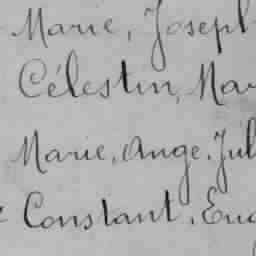 Marie, Joseph
Célestin, Mar
Marie, Ange, Jul
Constant, Eug